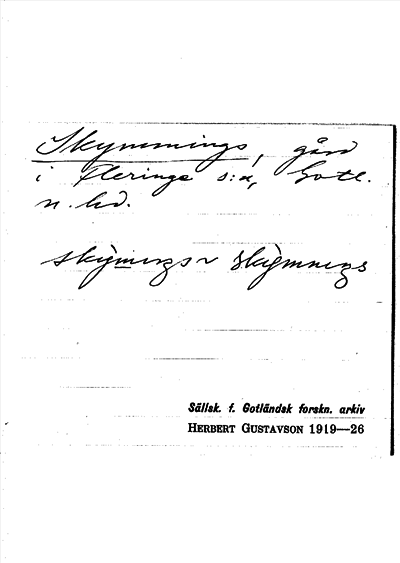 Skymmings, gård
i Flerings s:n, Gotl.
n. hd.
skỳmings ~ skỳmnings
Sällsk. f. Gotländsk forskn. arkiv
HERBERT GUSTAVSON 1919—26